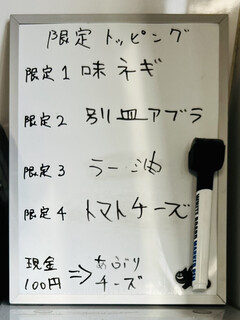 限定トッピング
限定1 味ネギ
限定2 別皿アブラ
限定3 ラー油
限定4 トマトチーズ
現金 ⇒ あぶり
100円 チーズ